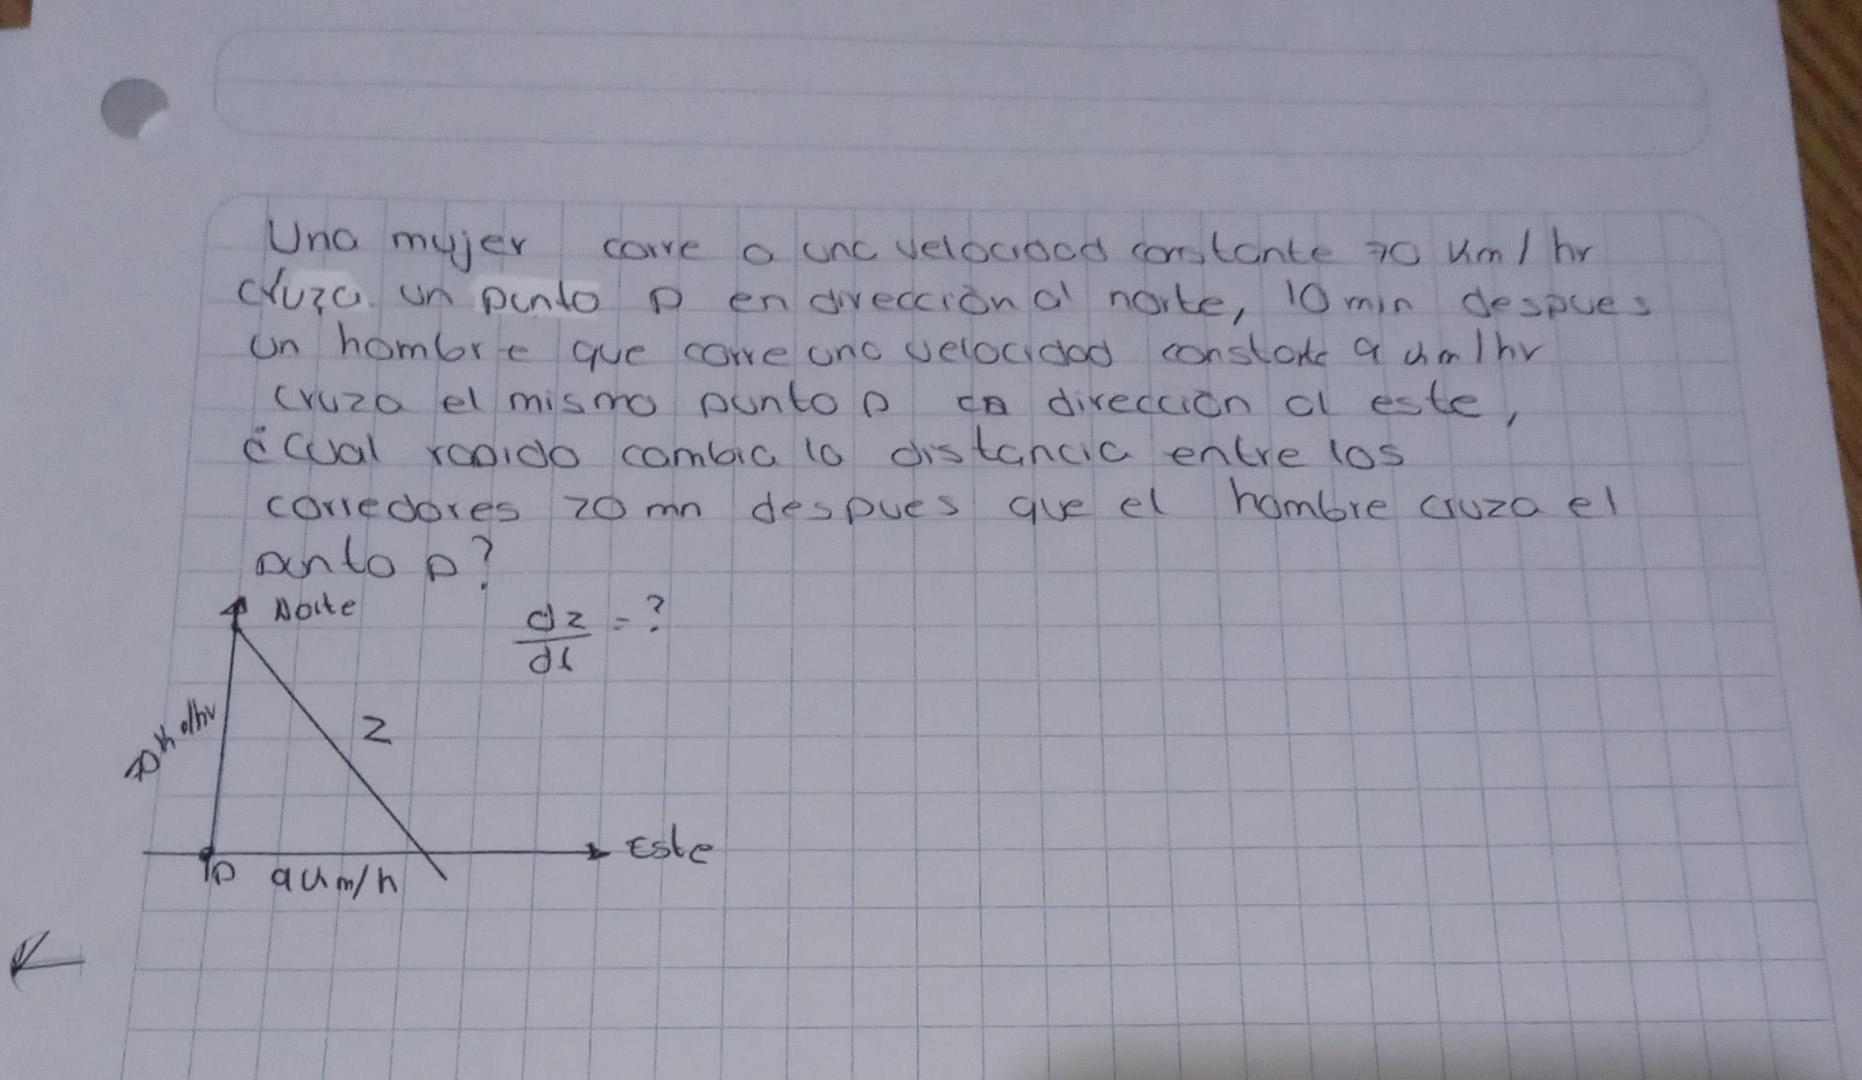 Una mujer corre a una velocidad constante 10 Km/hr
cruza un punto P en dirección al norte, 10 min despues
un hombre que corre una velocidad constante 9 km/hr
cruza el mismo punto P en dirección al este,
¿cual rapido cambia la distancia entre los
corredores 20 mn despues que el hombre cruza el
punto P?
Norte
dz/dt = ?
z
Este
P 9 Km/h